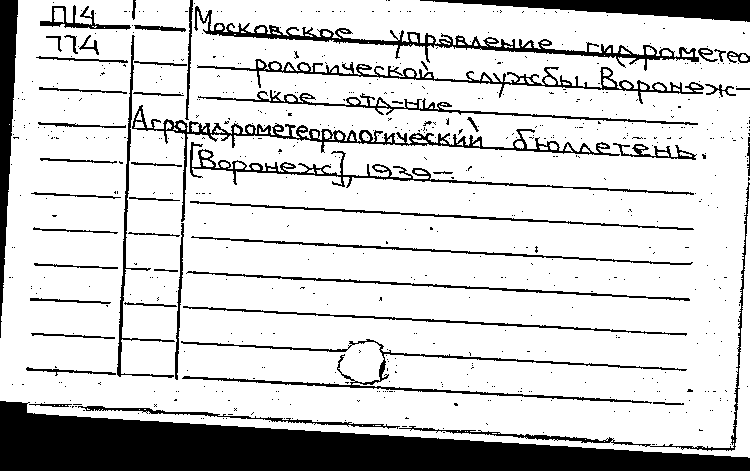 П14
774
Московское управление гидрометео
рологической службы. Воронеж-
ское отд-ние
Агрогидрометеорологический бюллетень.
[Воронеж], 1939-